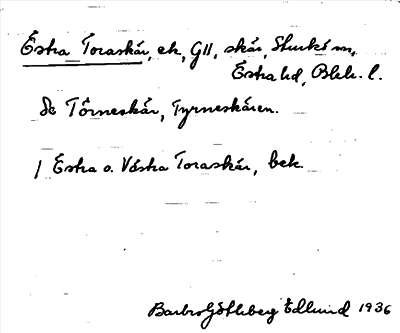 Östra Toraskär, ek, GII, skär, Sturkö sn,
Östra hd, Blek. l.
Se Törneskär, Tyrneskären.
/ Östra o. Västra Toraskär, bek.
Barbro Götlberg Edlund 1936